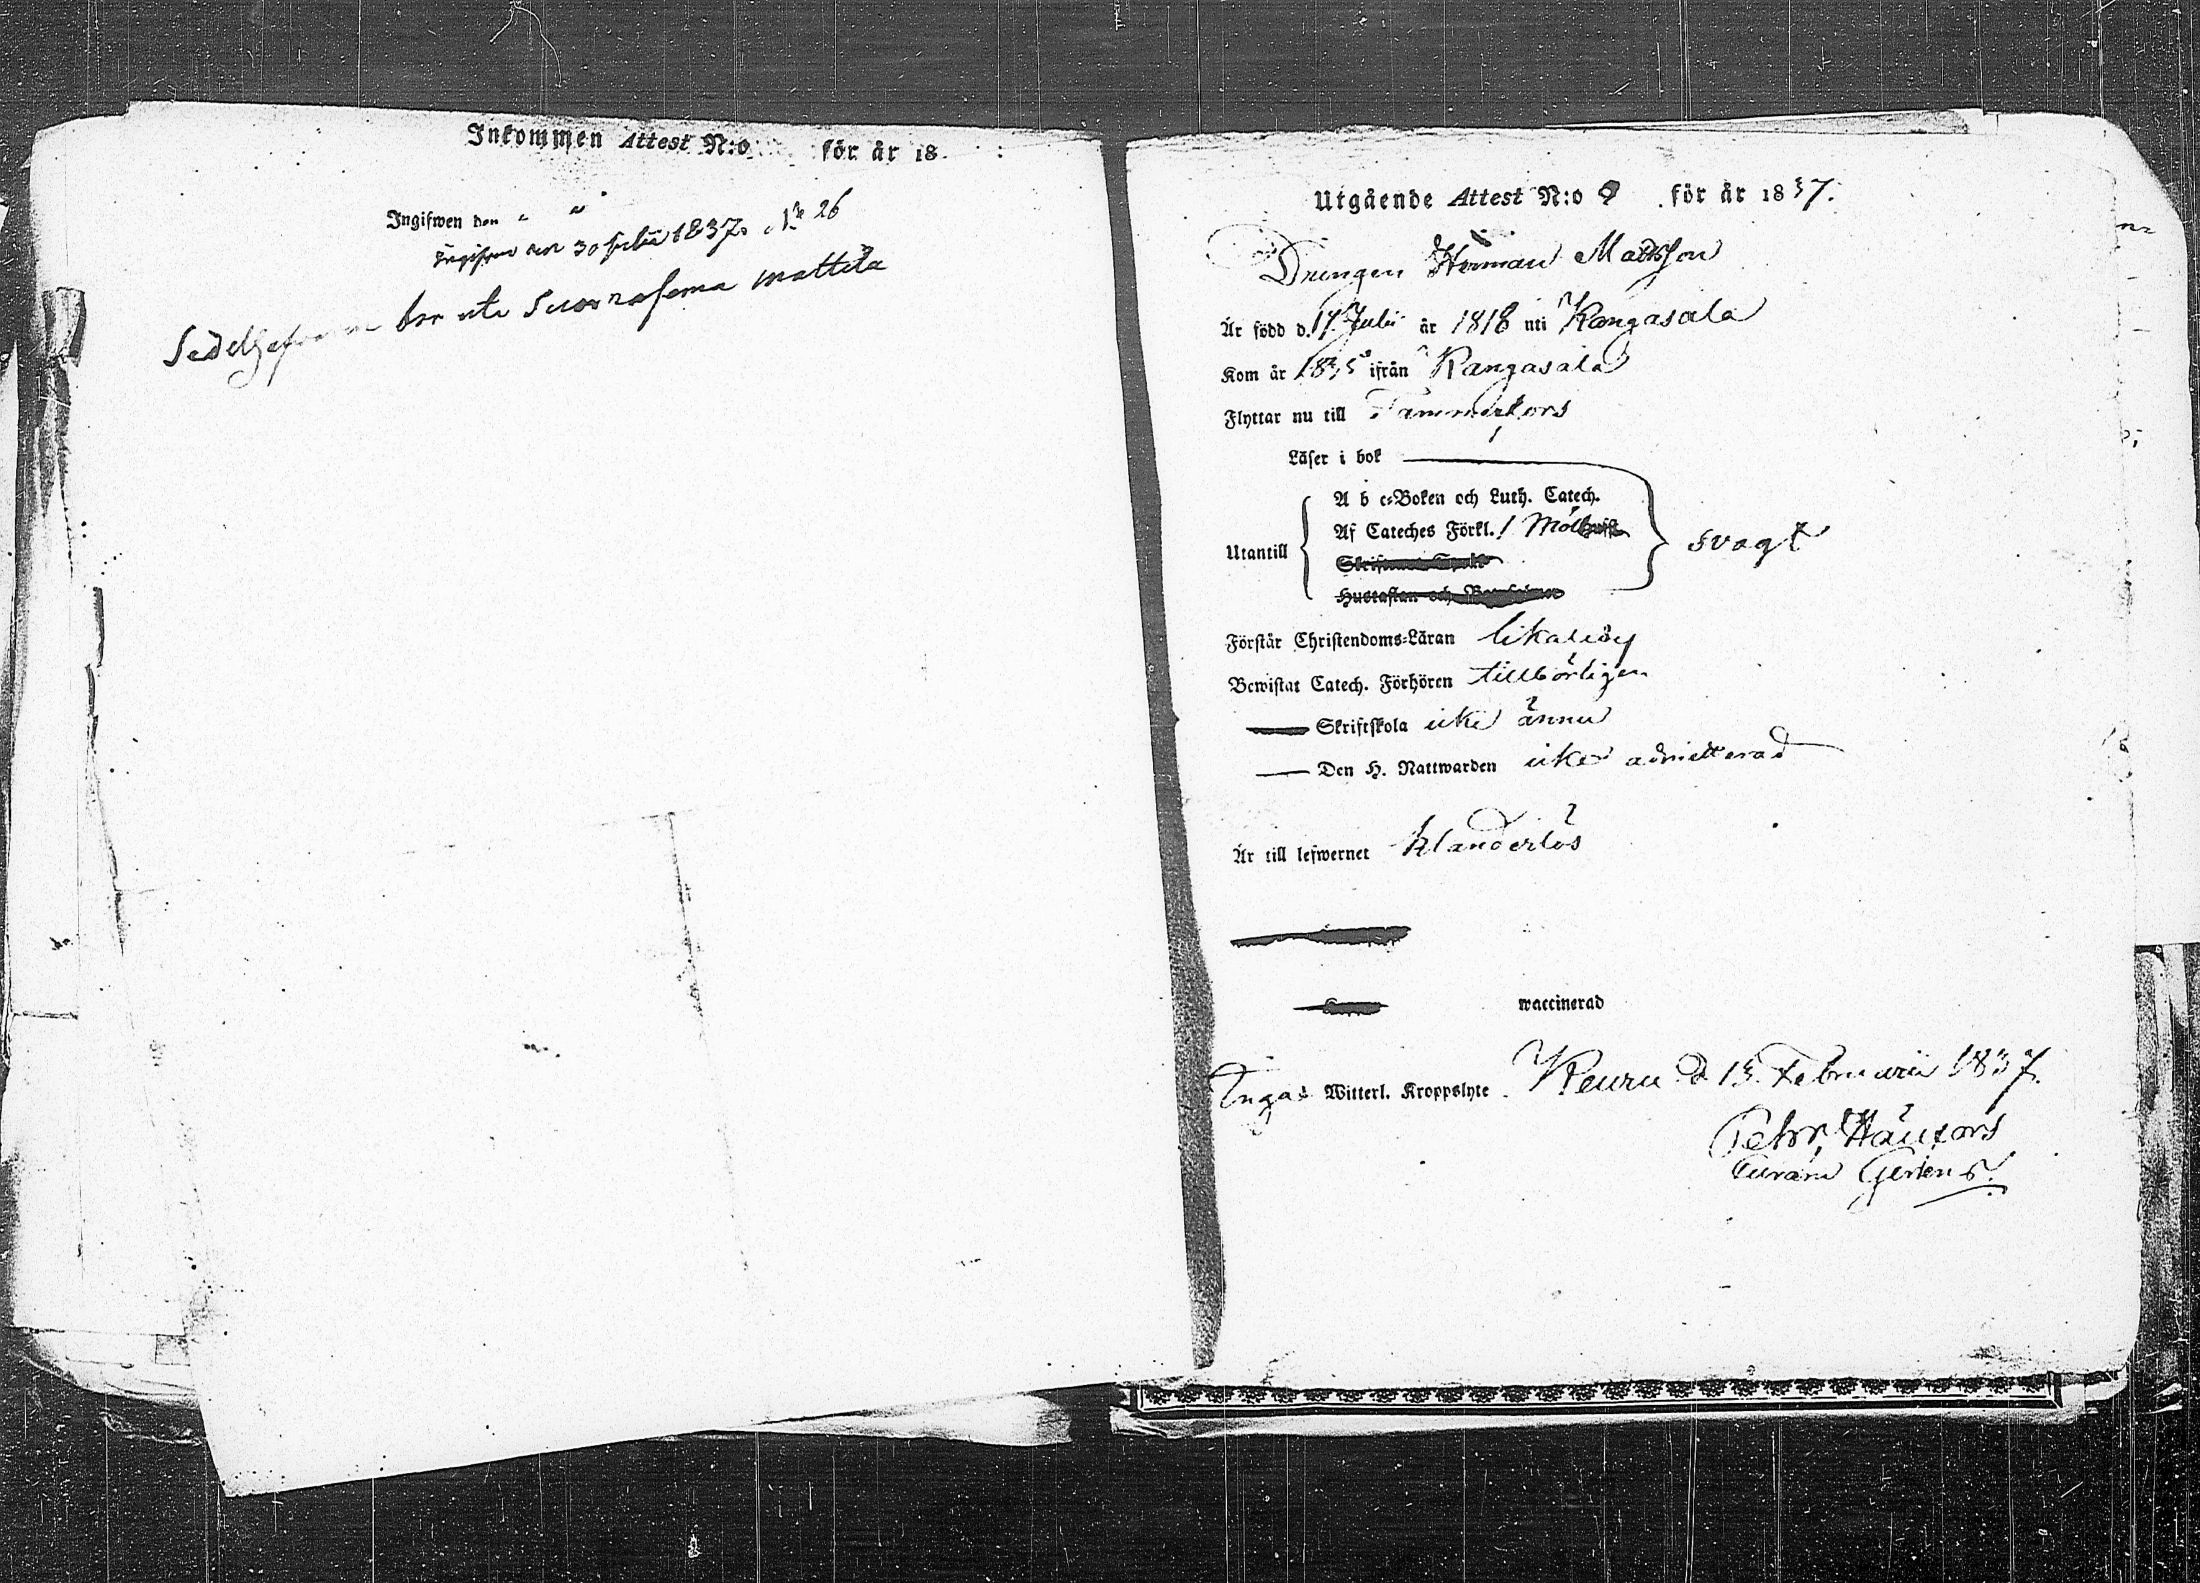 Inkommen Attest N:o för år 18
Ingifwen den " "
Ingifven den 30 Julii 1837. N:o 26
bor uti mattila
Utgående Attest N:o 9 för år 1837.
Drengen Herman Mattsson
Är född d. 17 Julii år 1818 uti Kangasala
Kom år 1835 ifrån Kangasala
Flyttar nu till Tammerfors
Läser i bok
A b c-Boken och Luth. Catech.
Af Cateches Förkl.
Utantill
svagt
Hustaflan och
Förstår Christendoms-Läran likaledes
Bewistat Catech. Förhören tillbörligen
Skriftskola icke ännu
Den H. Nattwarden icke admitterad
Är till lefwernet klanderlös
waccinerad
Inga Witterl. Kroppslyte Keuru d. 15 Februarii 1837.
Pehr